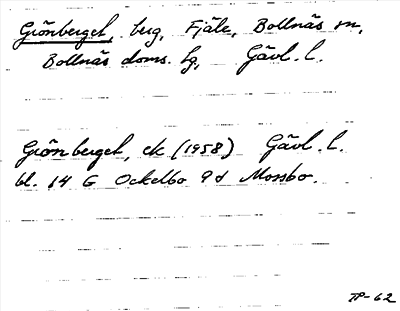 Grönberget, berg, Fjäle, Bollnäs sn,
Bollnäs doms. hg, Gävl. l.
Grönberget, ek (1958) Gävl. l.
bl. 14 G Ockelbo 9d Mossbo.
TP-62